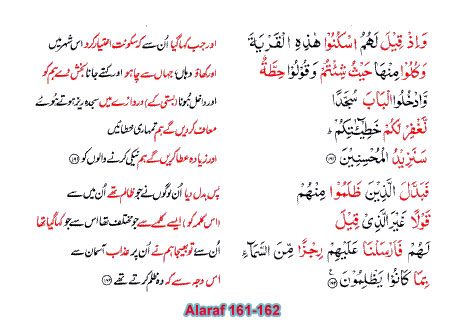 وَاِذْ قِيْلَ لَهُمُ اسْكُنُوْا هٰذِهِ الْقَرْيَةَ
وَكُلُوْا مِنْهَا حَيْثُ شِئْتُمْ وَقُوْلُوْا حِطَّةٌ
وَّادْخُلُوا الْبَابَ سُجَّدًا
نَّغْفِرْ لَكُمْ خَطِيْٓئٰتِكُمْ ؕ
سَنَزِيْدُ الْمُحْسِنِيْنَ ﴿۱۶۱﴾
فَبَدَّلَ الَّذِيْنَ ظَلَمُوْا مِنْهُمْ
قَوْلًا غَيْرَ الَّذِيْ قِيْلَ
لَهُمْ فَاَرْسَلْنَا عَلَيْهِمْ رِجْزًا مِّنَ السَّمَآءِ
بِمَا كَانُوْا يَظْلِمُوْنَ ﴿۱۶۲﴾
اور جب کہا گیا اُن سے کہ سکونت اختیار کرو اس شہر میں
اور کھاؤ وہاں جہاں سے چاہو اور کہتے جانا بخش دے ہم کو
اور داخل ہونا (بستی کے) دروازے میں سجدہ ریز ہوتے ہوئے
معاف کردیں گے ہم تمہاری خطائیں
اور زیادہ عطا کریں گے ہم نیکی کرنے والوں کو ﴿۱۶۱﴾
پس بدل دیا اُن لوگوں نے جو ظالم تھے اُن میں سے
(اس کلمہ کو) ایسے کلمے سے جو مختلف تھا اس سے جو کہا گیا تھا
اُن سے تو بھیجا ہم نے اُن پر عذاب آسمان سے
اس وجہ سے کہ وہ ظلم کرتے تھے ﴿۱۶۲﴾
Alaraf 161-162